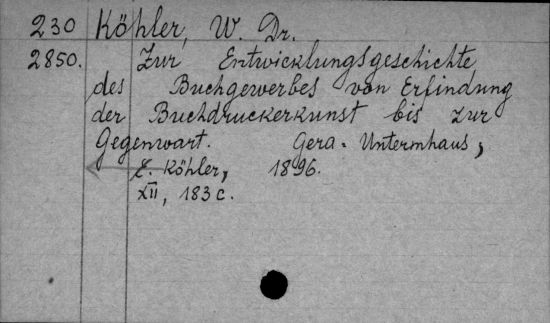 230 Köhler, W. Dr.
2850. Zur Entwicklungsgeschichte
des Buchgewerbes von Erfindung
der Buchdruckerkunst bis zur
Gegenwart. Gera-Untermhaus,
Köhler, 1896.
XII, 183 c.